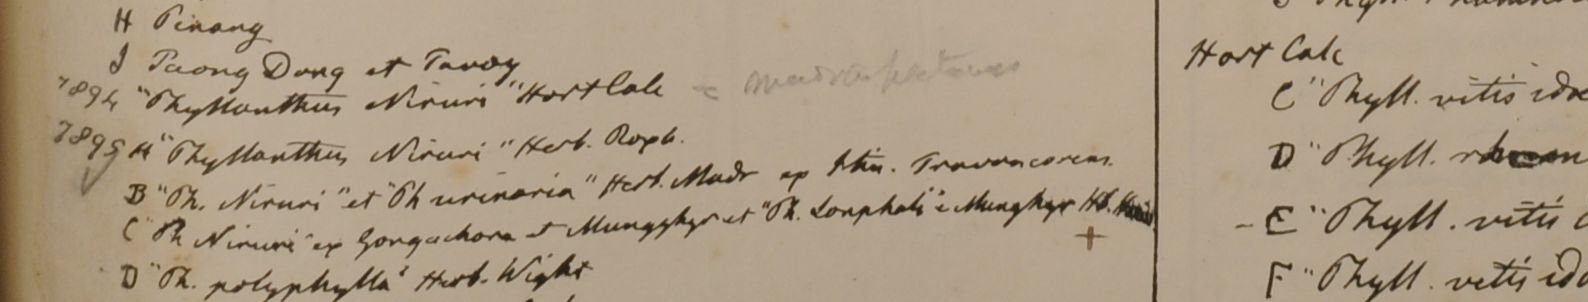 H Pinang
J Paong Dong et Tavoy
7894 "Phyllanthus Niruri" Hort Calc = maderaspatanus
7895 A "Phyllanthus Niruri" Herb. Roxb.
B "Ph. Niruri" et "Ph urinaria" Herb. Madr ex Itin. Travancorens.
C "Ph Niruri" ex Gongachora et Mungghyr et "Ph. " e Munghyr Hb.
D "Ph. polyphylla" Herb. Wight
Hort Calc
C "Phyll. vitis idae
D "Phyll.
- E "Phyll. vitis
F "Phyll. vitis ida